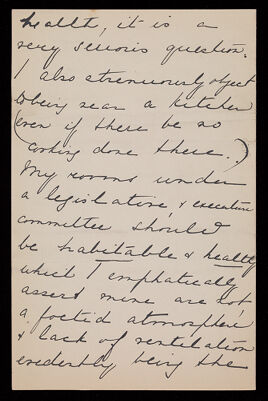 health, it is a
very serious question.
I also strenuously object
to being near a kitchen
(even if there be no
cooking done there.)
My rooms under
a legislative, & executive
committee should
be habitable & healthy
which I emphatically
assert mine are not,
a foetid atmosphere
& lack of ventilation
evidently being the